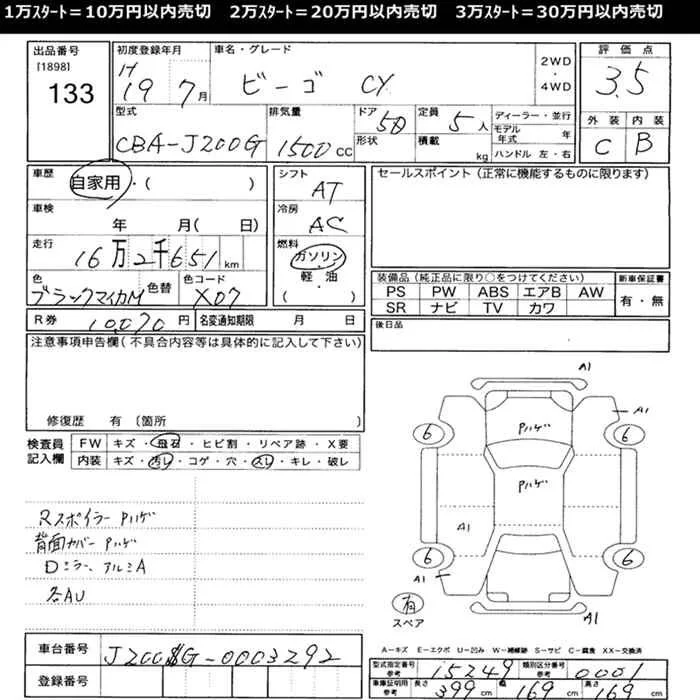 1万ｽﾀｰﾄ＝10万円以内売切　2万ｽﾀｰﾄ＝20万円以内売切　3万ｽﾀｰﾄ＝30万円以内売切
出品番号
[1898]
133
初度登録年月
H19 7月
車名・グレード
ビーゴ CX
2WD
・
4WD
評価点
3.5
型式
CBA-J200G
排気量
1500 CC
ドア
5D
形状
定員
5人
積載
kg
ディーラー・並行
モデル年式 年
ハンドル 左・右
外装
C
内装
B
車歴
自家用・( )
シフト
AT
セールスポイント（正常に機能するものに限ります）
車検
年 月( 日)
冷房
AC
走行
16万2千651 km
燃料
ガソリン
軽・油
( )
色
ブラックマイカM
色替
色コード
X07
装備品（純正品に限り○をつけてください）
PS PW ABS エアB AW
SR ナビ TV カワ
新車保証書
有・無
R券 10,070 円
名変通知期限 月 日
後日品
注意事項申告欄（不具合内容等は具体的に記入して下さい）
修復歴 有（箇所 ）
検査員
記入欄
FW キズ・飛石・ヒビ割・リペア跡・X要
内装 キズ・汚レ・コゲ・穴・スレ・キレ・破レ
Rスポイラー Pハゲ
背面カバー Pハゲ
Dミラー、アルミA
各AU
A1
A1
Pハゲ
6
6
Pハゲ
A1
6
6
A1
A1
有
スペア
A＝キズ E＝エクボ U＝凹み W＝補修跡 S＝サビ C＝腐食 XX＝交換済
車台番号
J200G-0003292
登録番号
型式指定番号
参考
15249
類別区分番号
参考
0001
車庫証明用
参考
長さ
399 cm
幅
169 cm
高さ
169 cm